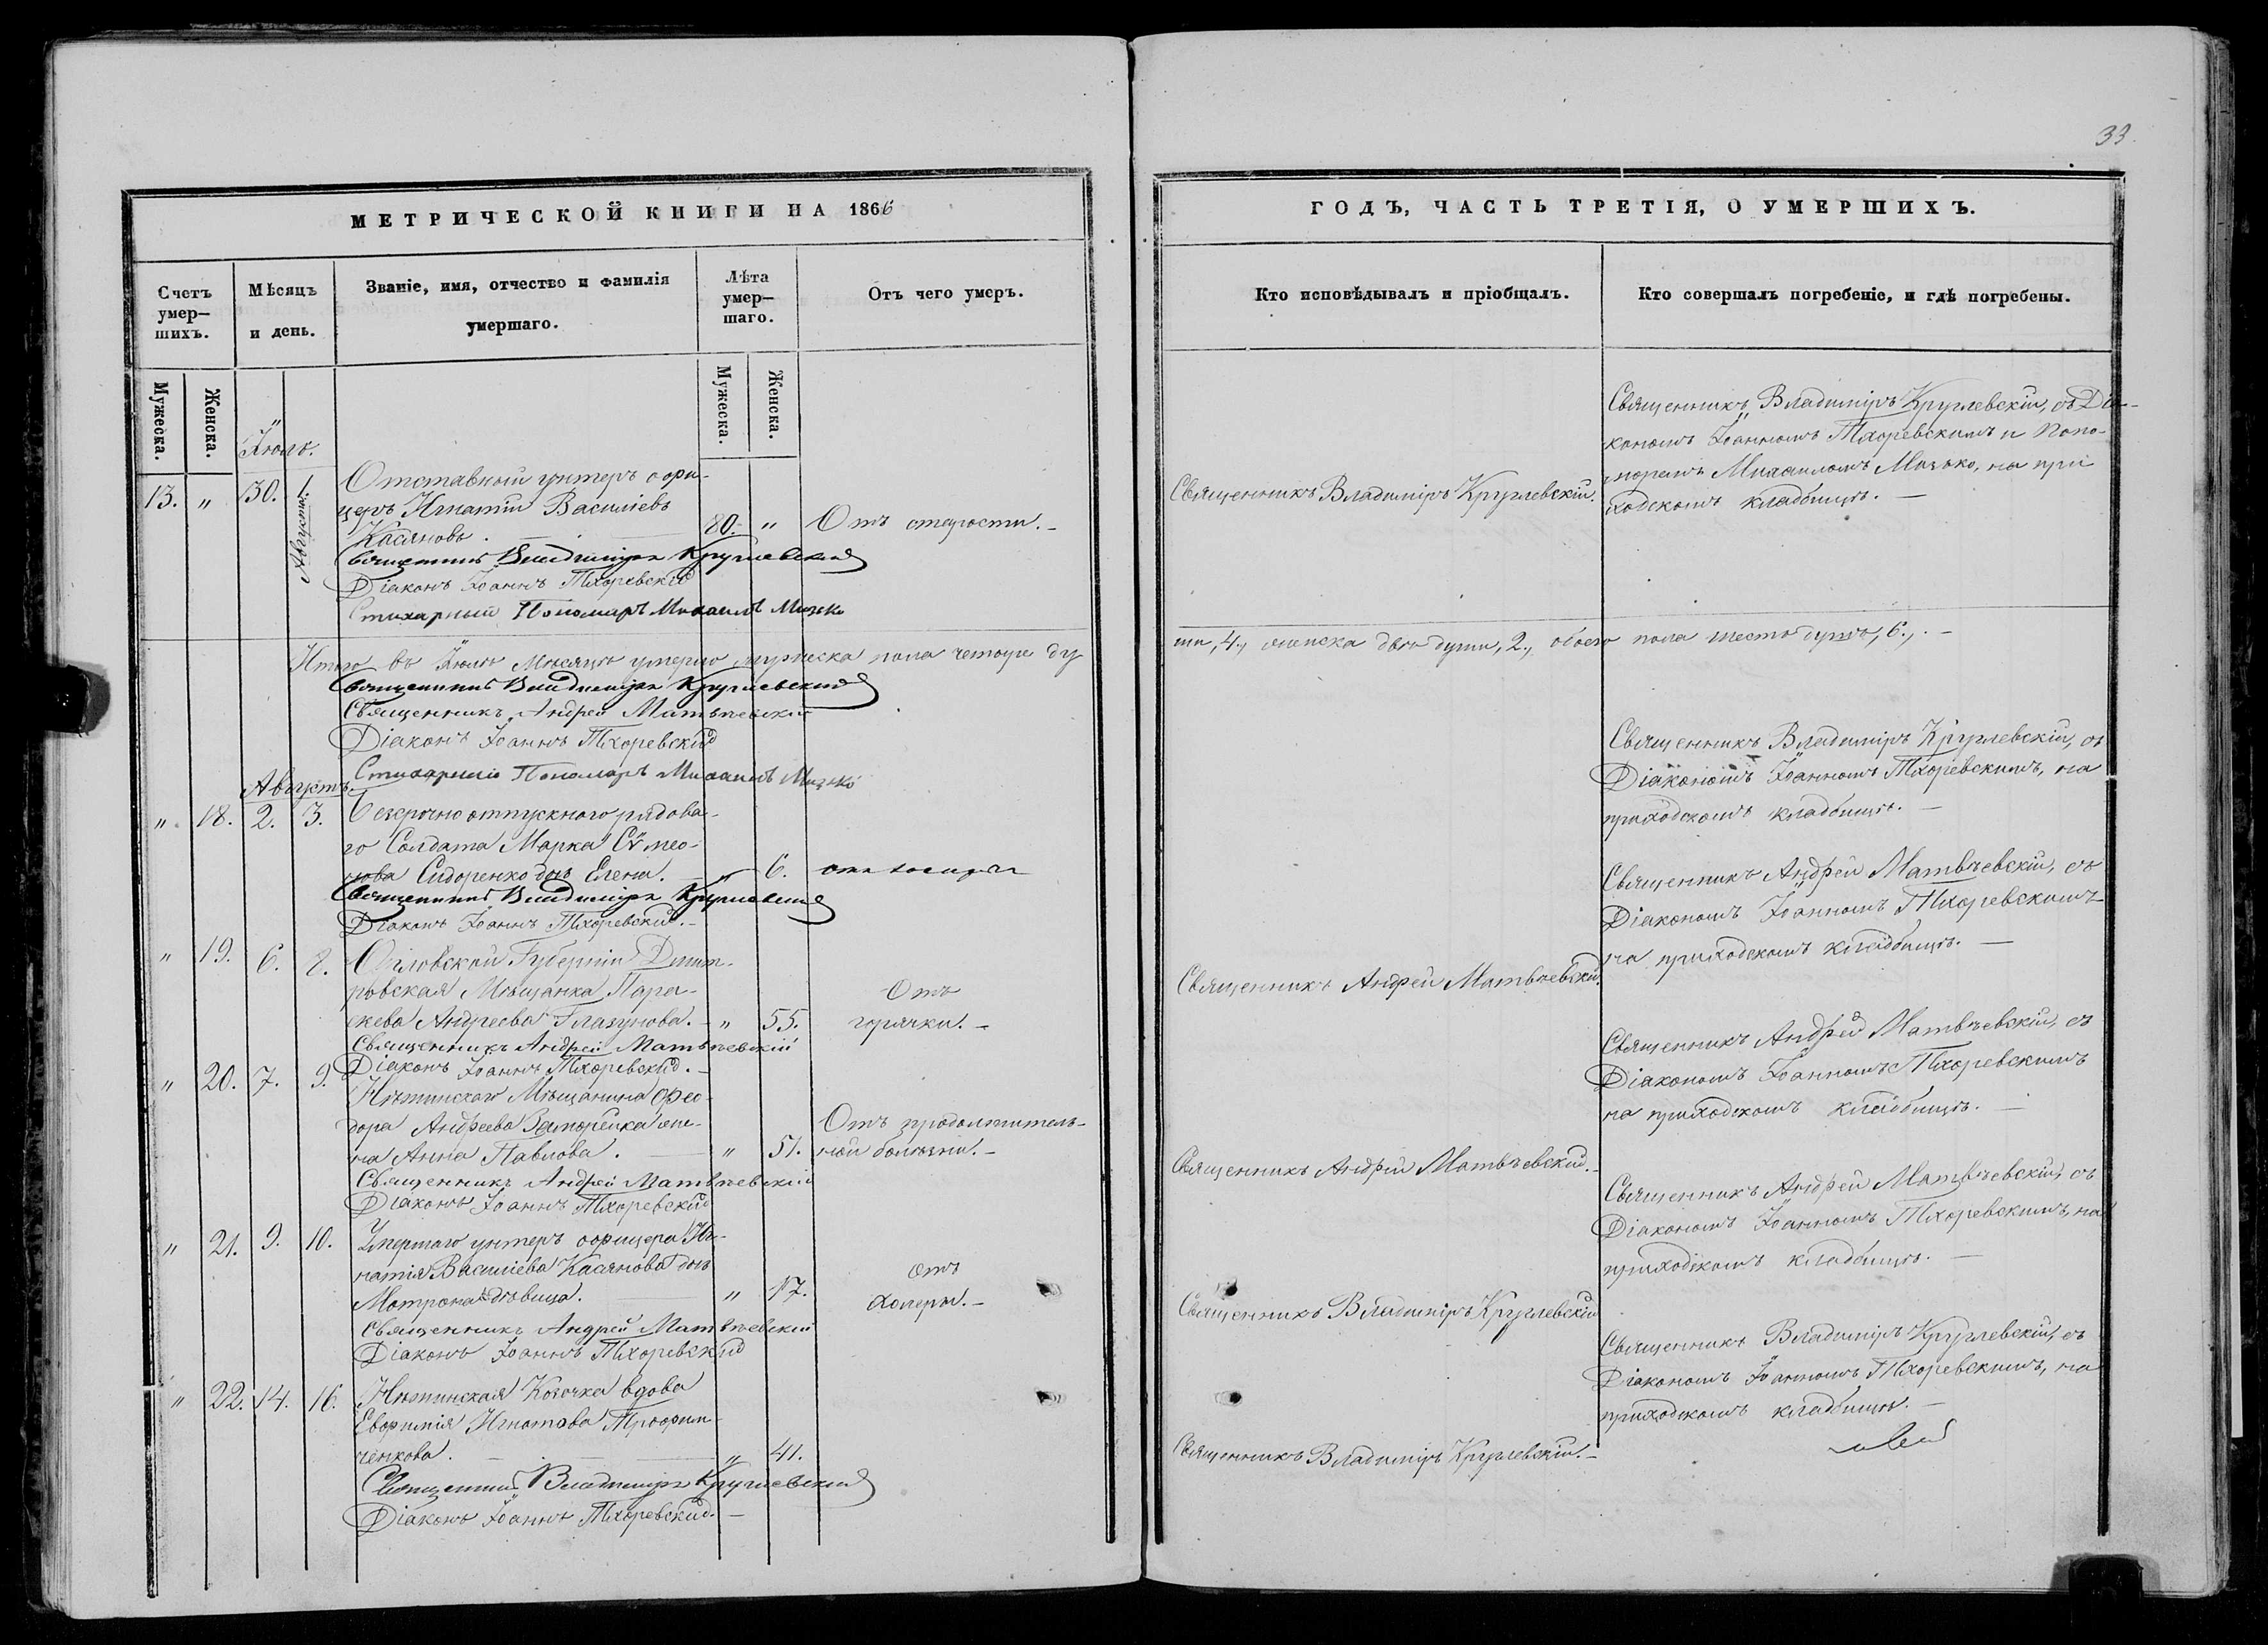 33.
МЕТРИЧЕСКОЙ КНИГИ НА 1866
Счетъ
умер-
шихъ.
Мѣсяцъ
и день.
Званіе, имя, отчество и фамилія
умершаго.
Лѣта
умер-
шаго.
Отъ чего умеръ.
Мужеска.
Женска.
Мужеска.
Женска.
Іюль.
13. " 30. 1. Августа
Отставный унтеръ офи-
церъ Игнатій Василіевъ
Касяновъ. 80. " Отъ старости.
Священникъ Владиміръ Круглевскій
Діаконъ Іоаннъ Тхоревскій
Стихарный Пономарь Михаилъ Мизько
Итого въ Іюлѣ Мѣсяцѣ умерло мужеска пола четыре ду
Священникъ Владиміръ Круглевскій
Священникъ Андрей Матвѣевскій
Діаконъ Іоаннъ Тхоревскій
Стихарный Пономарь Михаилъ Мизько
Августъ.
" 18. 2. 3. Безсрочно отпускного рядова-
го Солдата Марка Сѵмео-
нова Сидоренко дочь Елена. " 6.
Священникъ Владиміръ Круглевскій
Діаконъ Іоаннъ Тхоревскій.
" 19. 6. 8. Орловской Губерніи Дмит-
ровская Мѣщанка Пара-
скева Андреева Глазунова. " 55. Отъ
горячки.
Священникъ Андрей Матвѣевскій
Діаконъ Іоаннъ Тхоревскій.
" 20. 7. 9. Нѣжинскаго Мѣщанина Ѳео-
дора Андреева жe-
на Анна Павлова. " 51. Отъ продолжитель-
ной болѣзни.
Священникъ Андрей Матвѣевскій
Діаконъ Іоаннъ Тхоревскій
" 21. 9. 10. Умершаго унтеръ офицера Иг-
натія Василіева Касянова дочь
Матрона дѣвица. " 17. отъ
холеры.
Священникъ Андрей Матвѣевскій
Діаконъ Іоаннъ Тхоревскій
" 22. 14. 16. Нѣжинская Козачка вдова
Евфимія Игнатова Трофим-
ченкова. " 41.
Священникъ Владиміръ Круглевскій
Діаконъ Іоаннъ Тхоревскій.
ГОДЪ, ЧАСТЬ ТРЕТІЯ, О УМЕРШИХЪ.
Кто исповѣдывалъ и пріобщалъ.
Кто совершалъ погребеніе, и гдѣ погребены.
Священникъ Владиміръ Круглевскій.
Священникъ Владиміръ Круглевскій, съ Діа-
кономъ Іоанномъ Тхоревскимъ и Поно-
маремъ Михаиломъ Мизько, на при
ходскомъ кладбищѣ.
ши, 4., женска двѣ души, 2., обоего пола шесть душъ, 6.,
Священникъ Владиміръ Круглевскій, съ
Діакономъ Іоанномъ Тхоревскимъ, на
приходскомъ кладбищѣ.
Священникъ Андрей Матвѣевскій.
Священникъ Андрей Матвѣевскій, съ
Діакономъ Іоанномъ Тхоревскимъ
на приходскомъ кладбищѣ.
Священникъ Андрей Матвѣевскій.
Священникъ Андрей Матвѣевскій, съ
Діакономъ Іоанномъ Тхоревскимъ
на приходскомъ кладбищѣ.
Священникъ Владиміръ Круглевскій
Священникъ Андрей Матвѣевскій, съ
Діакономъ Іоанномъ Тхоревскимъ, на
приходскомъ кладбищѣ.
Священникъ Владиміръ Круглевскій.
Священникъ Владиміръ Круглевскій, съ
Діакономъ Іоанномъ Тхоревскимъ, на
приходскомъ кладбищѣ.